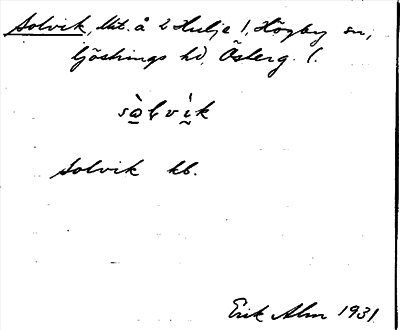 Solvik, lht. å 2 Hulje 1, Högby sn,
Göstrings hd, Österg. l.
sòlvìk
Solvik kb.
Erik Alm 1931